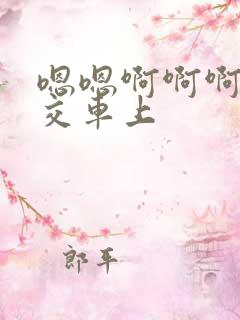 嗯嗯啊啊啊
交車上
郎平